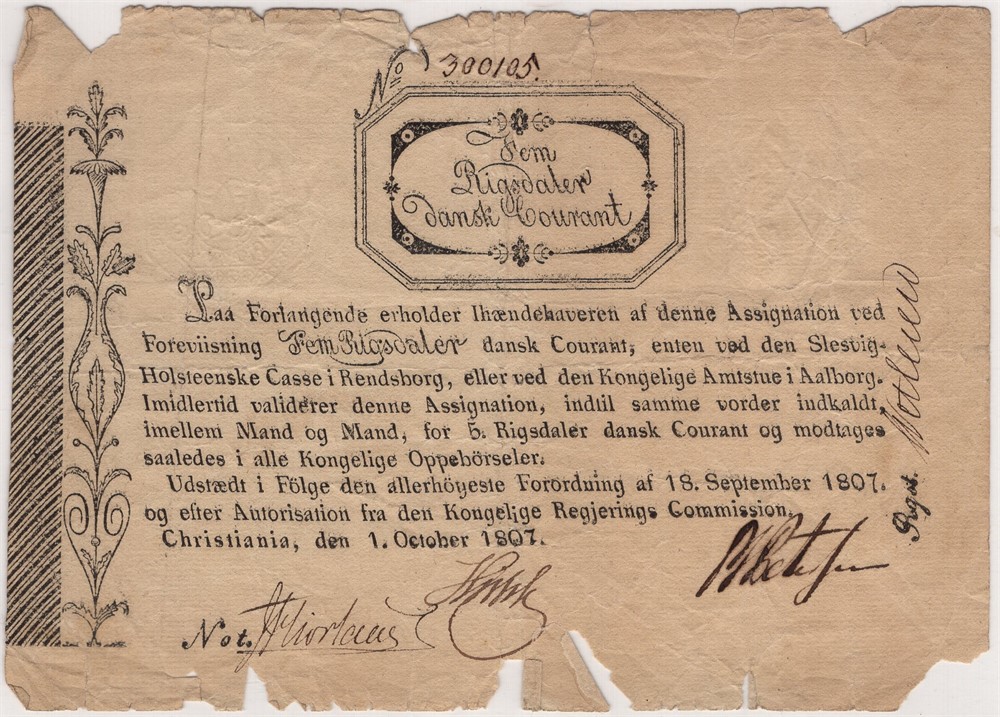 No 300105.
Fem
Rigsdaler
dansk Courant
Paa Forlangende erholder Ihændehaveren af denne Assignation ved
Foreviisning Fem Rigsdaler dansk Courant, enten ved den Slesvig-
Holsteenske Casse i Rendsborg, eller ved den Kongelige Amtstue i Aalborg.
Imidlertid validerer denne Assignation, indtil samme vorder indkaldt,
imellem Mand og Mand, for 5. Rigsdaler dansk Courant og modtages
saaledes i alle Kongelige Oppebörseler.
Udstædt i Fölge den allerhöyeste Forordning af 18. September 1807.
og efter Autorisation fra den Kongelige Regjerings Commission.
Christiania, den 1. October 1807.
Not.
Regst.